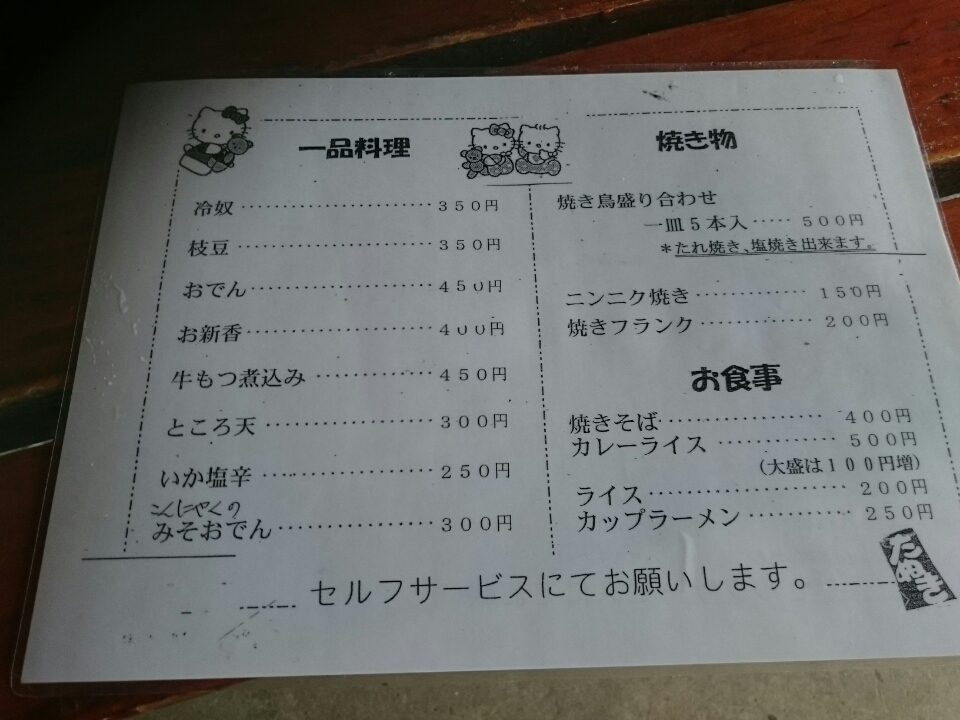 一品料理
冷奴 ‥‥‥‥‥‥‥‥ 350円
枝豆 ‥‥‥‥‥‥‥‥ 350円
おでん‥‥‥‥‥‥‥‥ 450円
お新香‥‥‥‥‥‥‥‥ 400円
牛もつ煮込み ‥‥‥‥‥ 450円
ところ天 ‥‥‥‥‥‥‥ 300円
いか塩辛 ‥‥‥‥‥‥‥ 250円
こんにゃくの
みそおでん‥‥‥‥‥‥‥ 300円
焼き物
焼き鳥盛り合わせ
一皿5本入 ‥‥‥ 500円
*たれ焼き、塩焼き出来ます。
ニンニク焼き ‥‥‥‥‥ 150円
焼きフランク ‥‥‥‥‥ 200円
お食事
焼きそば‥‥‥‥‥‥‥ 400円
カレーライス ‥‥‥‥‥ 500円
(大盛は100円増)
ライス‥‥‥‥‥‥‥‥ 200円
カップラーメン ‥‥‥‥ 250円
セルフサービスにてお願いします。
たぬき